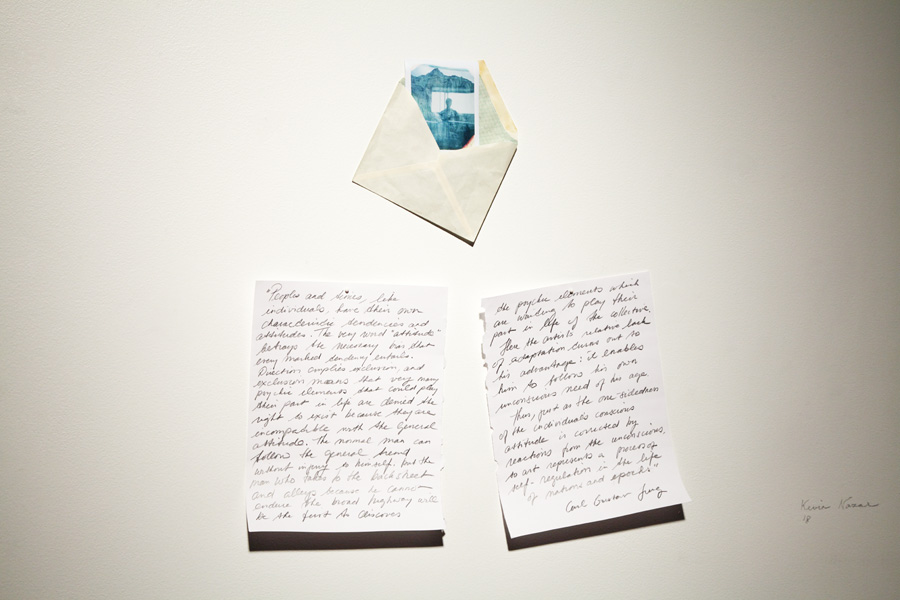 "Peoples and times, like
individuals, have their own
characteristic tendencies and
attitudes. The very word "attitude"
betrays the necessary bias that
every marked tendency entails.
Direction implies exclusion, and
exclusion means that very many
psychic elements that could play
their part in life are denied the
right to exist because they are
incompatible with the General
attitude. The normal man can
follow the general trend
without injury to himself, but the
man who takes to the backstreet
and alleys because he cannot
endure the broad highway will
be the first to discover
the psychic elements which
are waiting to play their
part in life of the collective.
Here the artist's relative lack
of adaptation turns out to
his advantage: it enables
him to follow his own
unconscious need of his age.
Thus, just as the one-sidedness
of the individual's conscious
attitude is corrected by
reactions from the unconscious,
so art represents a process of
self-regulation in the life
of nations and epochs"
Carl Gustav Jung